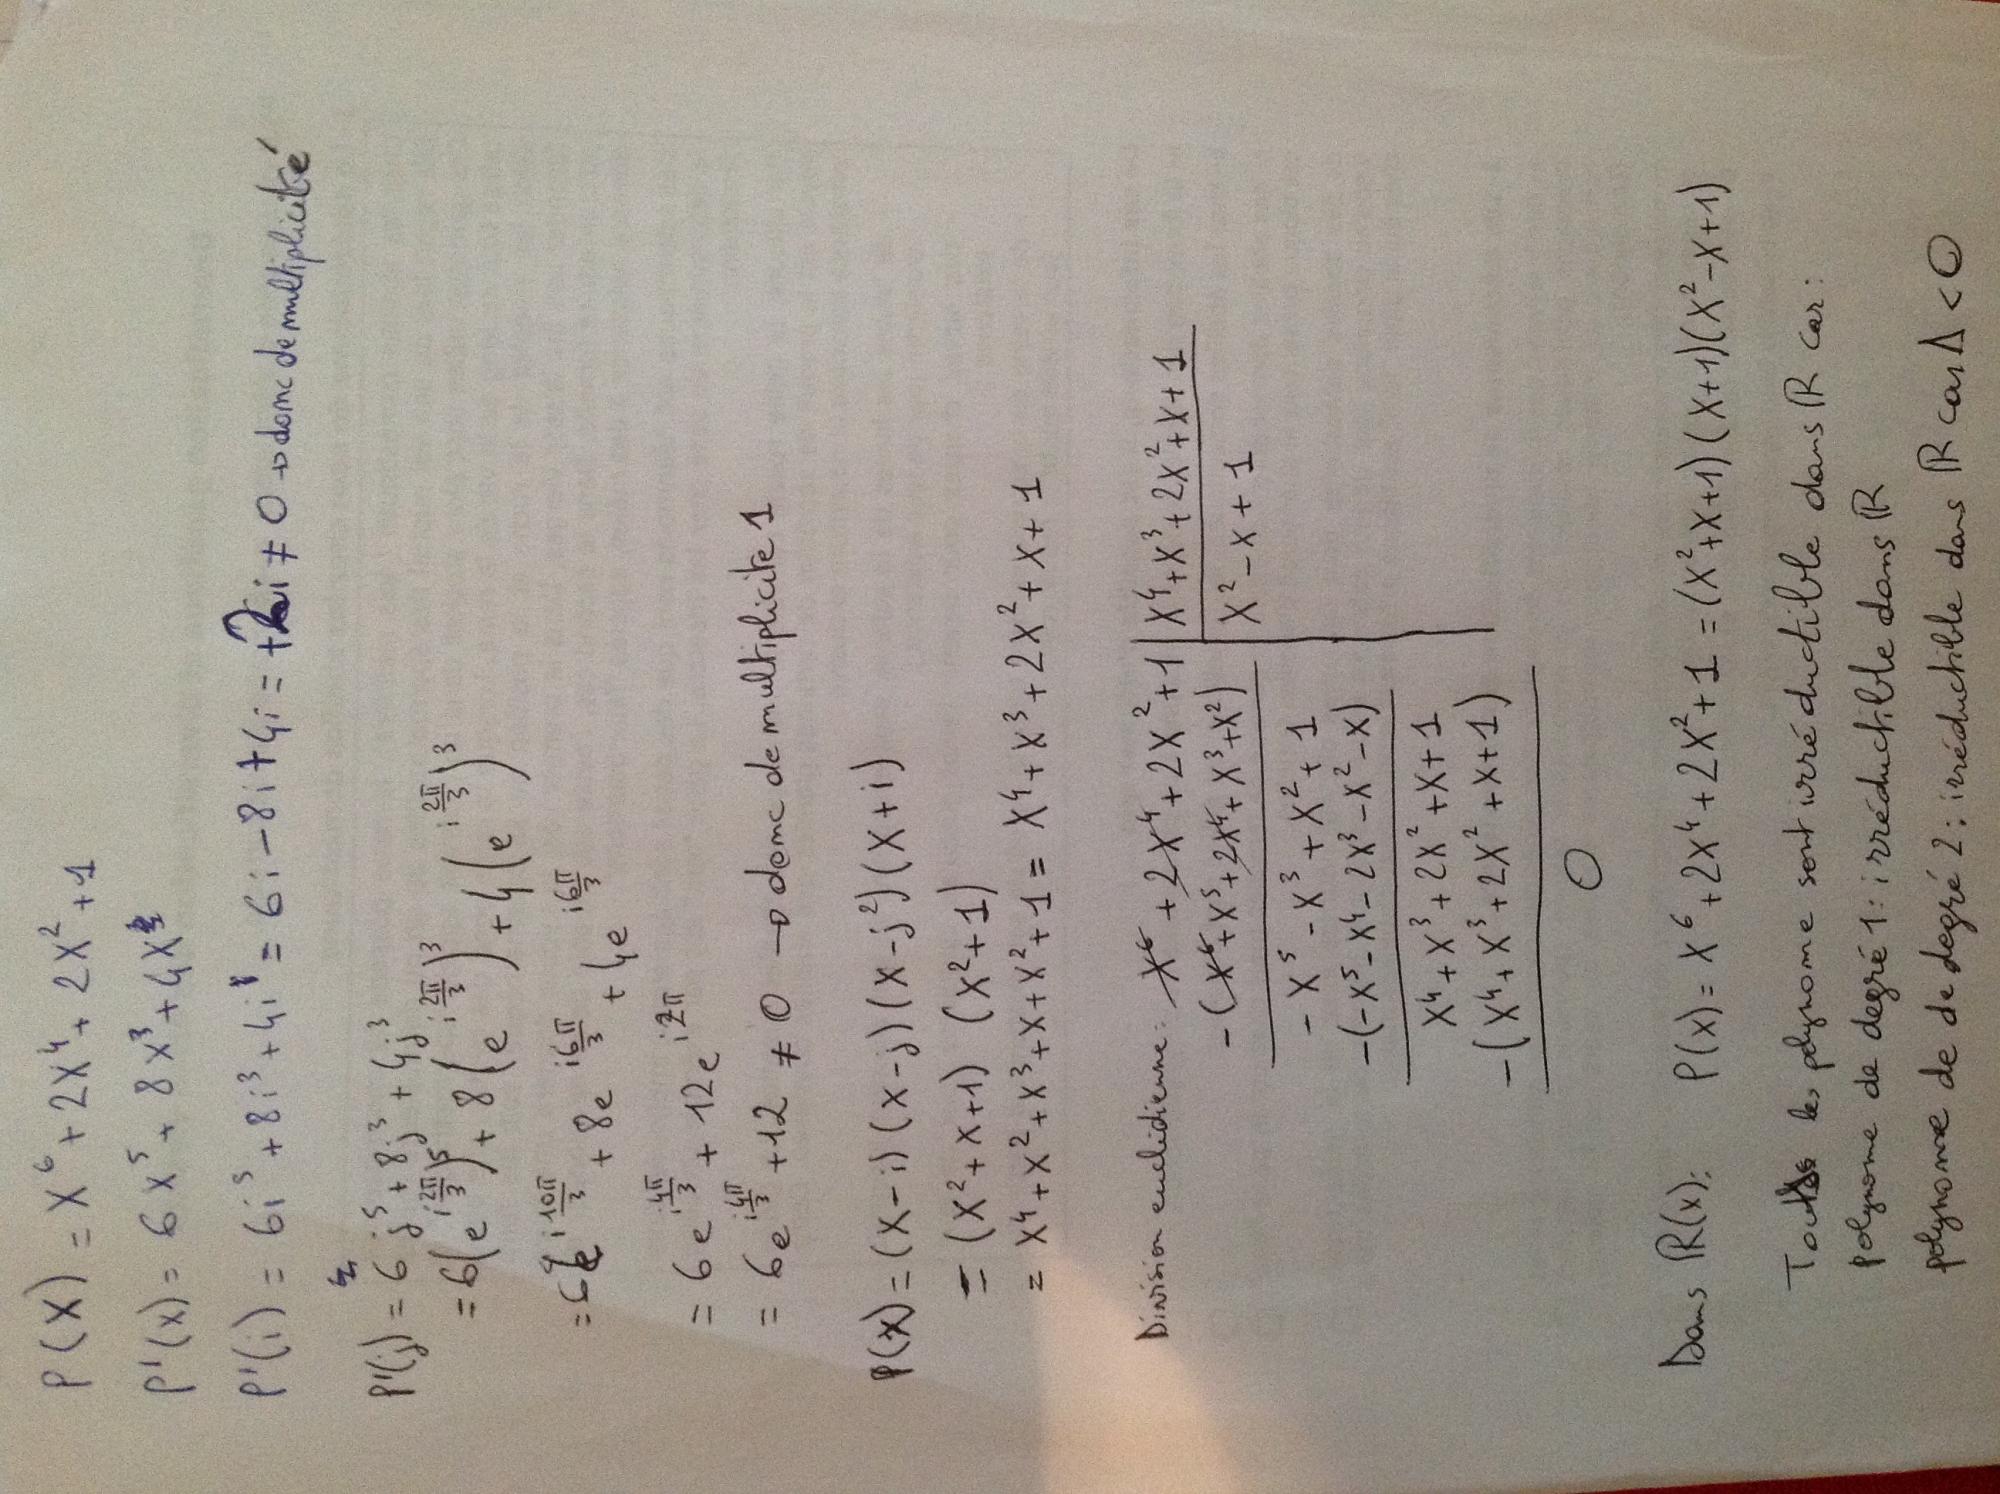 P(X) = X⁶ + 2X⁴ + 2X² + 1
P'(x) = 6X⁵ + 8X³ + 4X
P'(i) = 6i⁵ + 8i³ + 4i = 6i - 8i + 4i = +2i ≠ 0 → donc de multiplicité
P'(j) = 6j⁵ + 8j³ + 4j³
= 6(e^{i2π/3})⁵ + 8(e^{i2π/3})³ + 4(e^{i2π/3})³
= 6e^{i10π/3} + 8e^{i6π/3} + 4e^{i6π/3}
= 6e^{i4π/3} + 12e^{i2π}
= 6e^{i4π/3} + 12 ≠ 0 → donc de multiplicite 1
P(X) = (X-i)(X-j)(X-j²)(X+i)
= (X²+X+1) (X²+1)
= X⁴+X²+X³+X+X²+1 = X⁴+X³+2X²+X+1
Division euclidienne: X⁶ + 2X⁴ + 2X² + 1 | X⁴+X³+2X²+X+1
-(X⁶+X⁵+2X⁴+X³+X²) X²-X+1
-X⁵-X³+X²+1
-(-X⁵-X⁴-2X³-X²-X)
X⁴+X³+2X²+X+1
-(X⁴+X³+2X²+X+1)
0
Dans ℝ(x): P(x) = X⁶+2X⁴+2X²+1 = (X²+X+1)(X+1)(X²-X+1)
les polynome sont irréductible dans ℝ car:
polynome de degré 1: irréductible dans ℝ
polynome de degré 2: irréductible dans ℝ car Δ<0